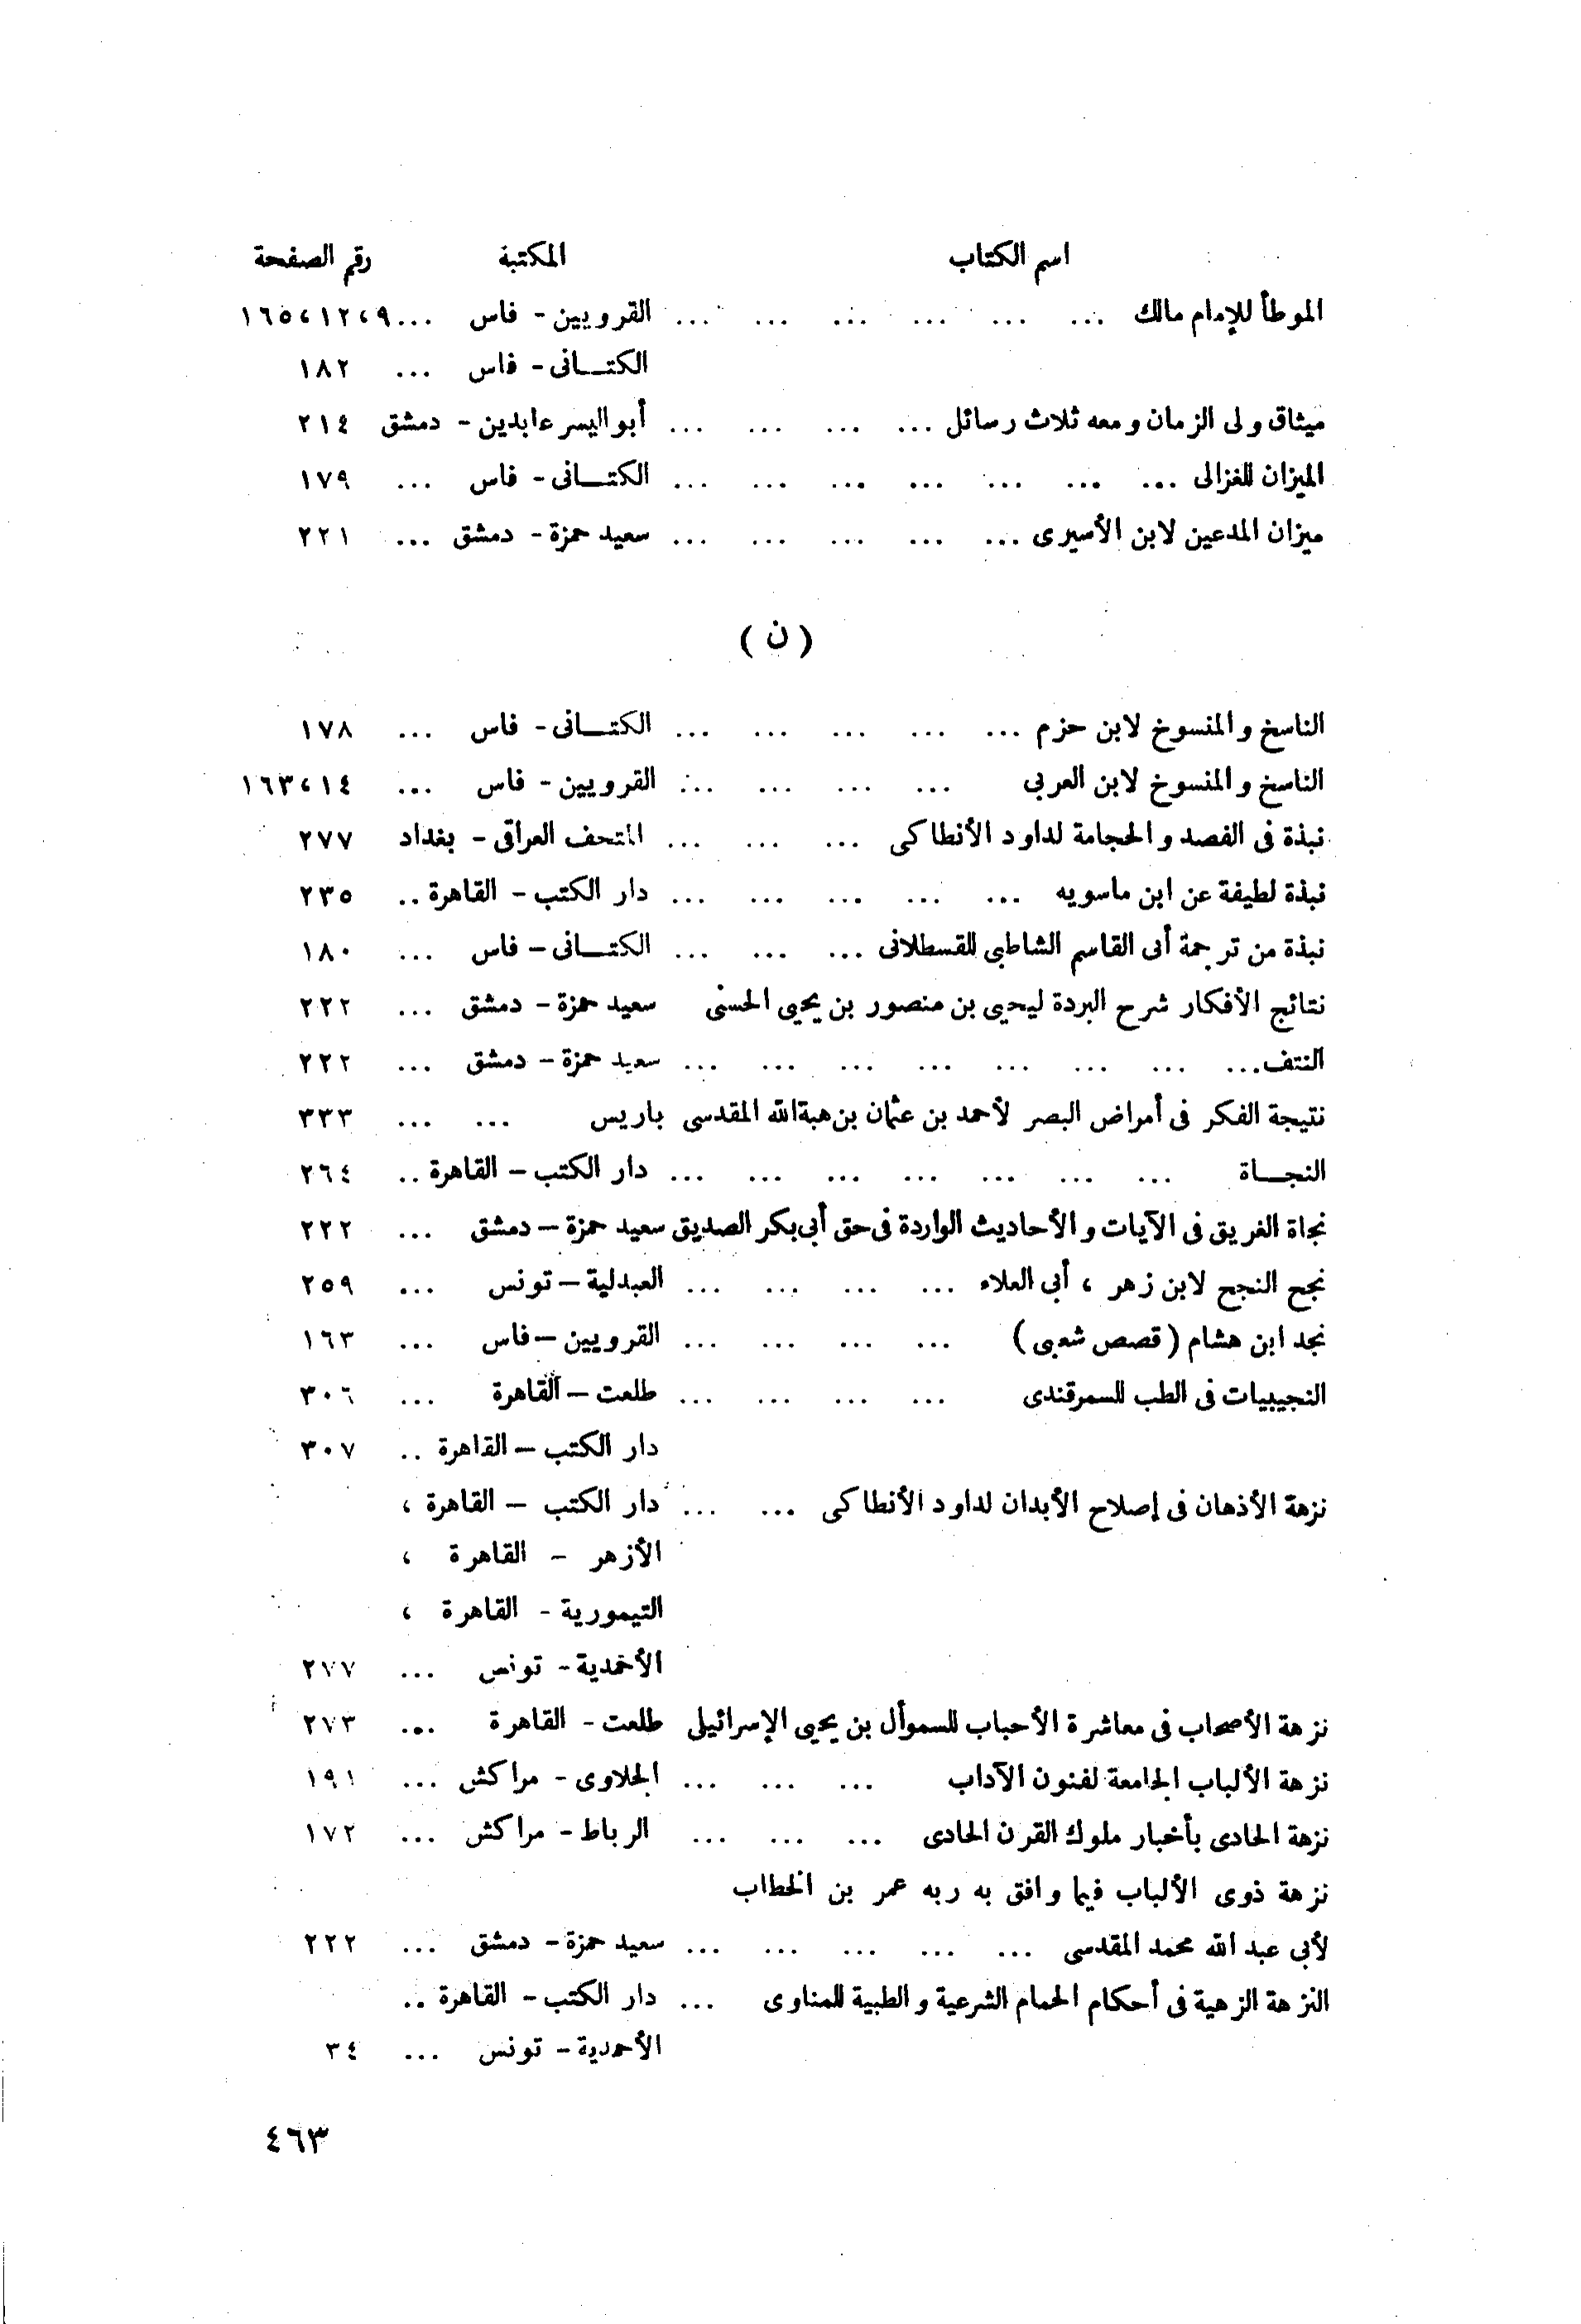 اسم الكتاب المكتبة رقم الصفحة
الموطأ للإمام مالك ... ... ... ... ... ... القرويين - فاس ... ٩، ١٢، ١٦٥
الكتــانى - فاس ... ١٨٢
ميثاق ولى الزمان ومعه ثلاث رسائل ... ... ... ... أبو اليسر عابدين - دمشق ٢١٤
الميزان للغزالى ... ... ... ... ... ... ... الكتــانى - فاس ... ١٧٩
ميزان المدعين لابن الأسيرى ... ... ... ... ... سعيد حمزة - دمشق ... ٢٢١
( ن )
الناسخ والمنسوخ لابن حزم ... ... ... ... ... الكتــانى - فاس ... ١٧٨
الناسخ والمنسوخ لابن العربى ... ... ... ... القرويين - فاس ... ١٤، ١٦٣
نبذة فى الفصد والحجامة لداود الأنطاكى ... ... ... المتحف العراقى - بغداد ٢٧٧
نبذة لطيفة عن ابن ماسويه ... ... ... ... ... دار الكتب - القاهرة .. ٢٣٥
نبذة من ترجمة أبى القاسم الشاطبى للقسطلانى ... ... ... الكتــانى - فاس ... ١٨٠
نتائج الأفكار شرح البردة ليحيى بن منصور بن يحيى الحسنى سعيد حمزة - دمشق ... ٢٢٢
النتف ... ... ... ... ... ... ... ... سعيد حمزة - دمشق ... ٢٢٢
نتيجة الفكر فى أمراض البصر لأحمد بن عثمان بن هبة الله المقدسى باريس ... ... ٣٣٣
النجــاة ... ... ... ... ... ... ... دار الكتب - القاهرة .. ٢٦٤
نجاة الغريق فى الآيات والأحاديث الواردة فى حق أبى بكر الصديق سعيد حمزة - دمشق ... ٢٢٢
نجح النجح لابن زهر ، أبى العلاء ... ... ... ... العبدلية - تونس ... ٢٥٩
نجد ابن هشام ( قصص شعبى ) ... ... ... ... القرويين - فاس ... ١٦٣
النجيبيات فى الطب للسمرقندى ... ... ... ... طلعت - القاهرة ... ٣٠٦
دار الكتب - القاهرة .. ٣٠٧
نزهة الأذهان فى إصلاح الأبدان لداود الأنطاكى ... ... دار الكتب - القاهرة ،
الأزهر - القاهرة ،
التيمورية - القاهرة ،
الأحمدية - تونس ... ٢٧٧
نزهة الأصحاب فى معاشرة الأحباب للسموأل بن يحيى الإسرائيلى طلعت - القاهرة ... ٢٧٣
نزهة الألباب الجامعة لفنون الآداب ... ... ... الجلاوى - مراكش ... ١٩١
نزهة الحادى بأخبار ملوك القرن الحادى ... ... ... الرباط - مراكش ... ١٧٢
نزهة ذوى الألباب فيما وافق به ربه عمر بن الخطاب
لأبى عبد الله محمد المقدسى ... ... ... ... ... سعيد حمزة - دمشق ... ٢٢٢
النزهة الزهية فى أحكام الحمام الشرعية والطبية للمناوى ... دار الكتب - القاهرة ..
الأحمدية - تونس ... ٣٤
٤٦٣